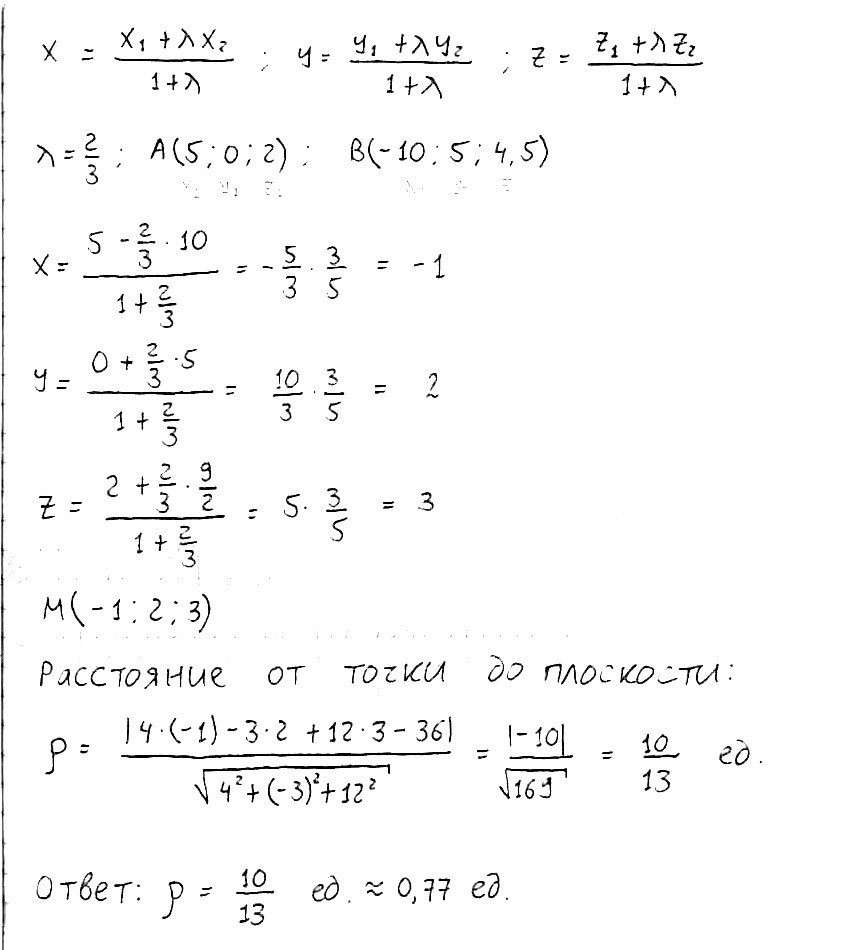 x = (x₁ + λx₂)/(1+λ) ; y = (y₁ + λy₂)/(1+λ) ; z = (z₁ + λz₂)/(1+λ)
λ = 2/3 ; A(5;0;2) ; B(-10;5;4,5)
x = (5 - 2/3 · 10)/(1 + 2/3) = - 5/3 · 3/5 = -1
y = (0 + 2/3 · 5)/(1 + 2/3) = 10/3 · 3/5 = 2
z = (2 + 2/3 · 9/2)/(1 + 2/3) = 5 · 3/5 = 3
M(-1;2;3)
Расстояние от точки до плоскости:
ρ = |4·(-1) - 3·2 + 12·3 - 36|/√(4² + (-3)² + 12²) = |-10|/√169 = 10/13 ед.
Ответ: ρ = 10/13 ед. ≈ 0,77 ед.